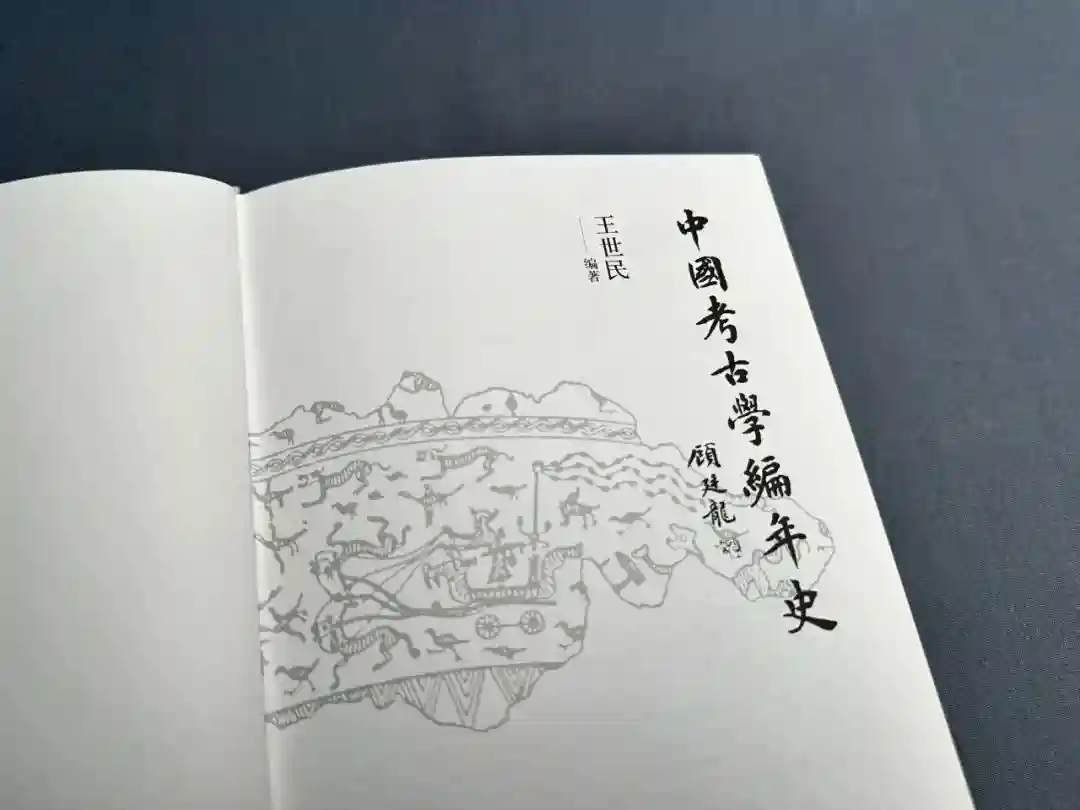 中國考古學編年史
顧廷龍
王世民
编著